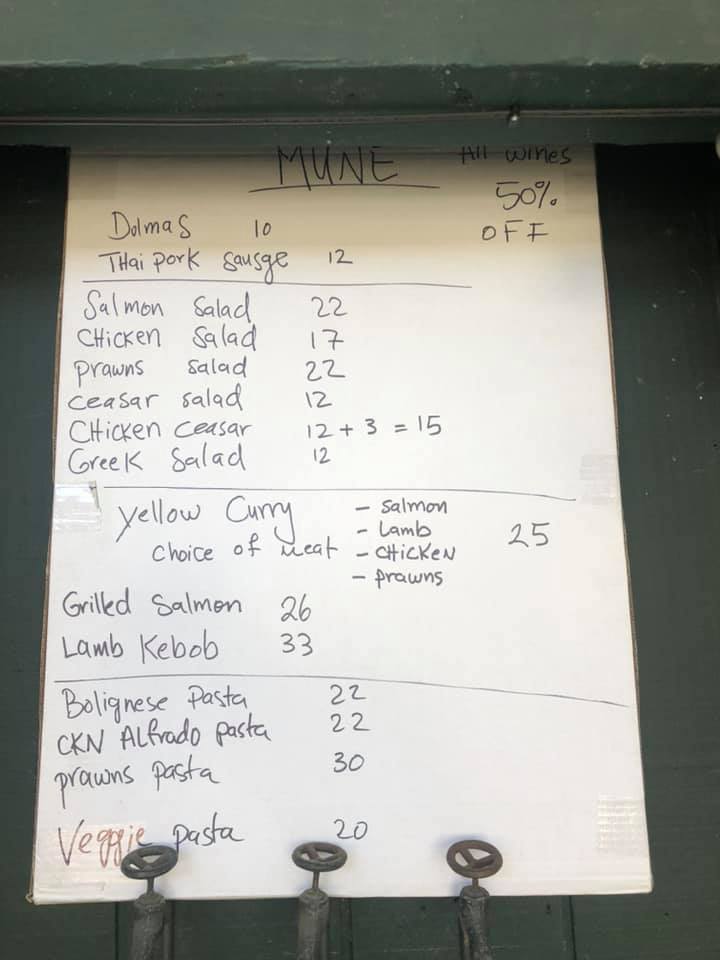 MUNE
All wines
50%
OFF
Dolmas 10
THai pork sausge 12
Salmon Salad 22
CHicken Salad 17
prawns salad 22
ceasar salad 12
CHicken ceasar 12 + 3 = 15
Greek Salad 12
Yellow Curry
choice of meat
- salmon
- Lamb
- CHicKeN
- prawns
25
Grilled Salmon 26
Lamb Kebob 33
Bolignese Pasta 22
CKN ALfrado pasta 22
prawns pasta 30
Veggie pasta 20